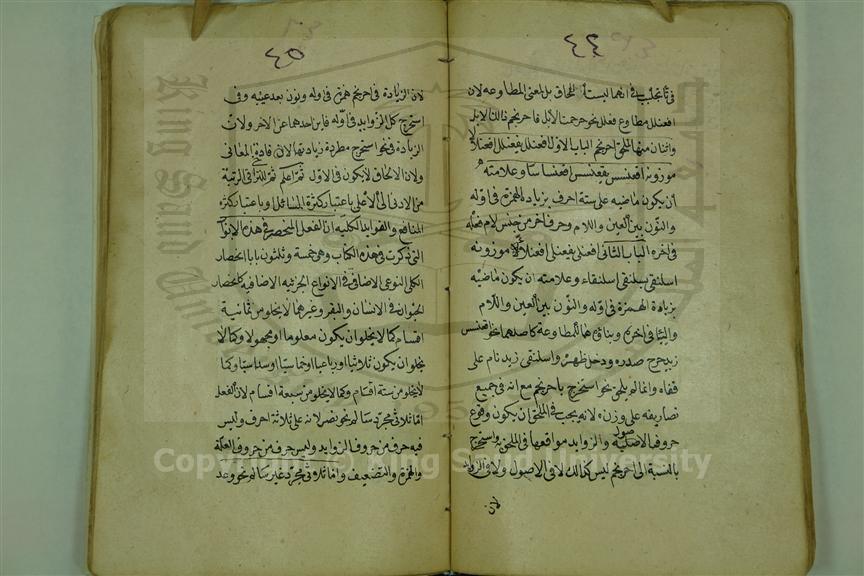 ٤٤
في تاء تجلبب في انهما ليستا للالحاق بل لمعنى المطاوعه لان
افعنلل مطاوع فعلل نحو حرجمت الابل فاحرنجم ذلك الابل
واثنان منها لملحق احرنجم الباب الاول افعنلل يفعنلل افعنلالا
موزونه اقعنسس يقعنسس اقعنساسا وعلامته
أن يكون ماضيه على ستة احرف بزيادة الهمزة في اوله
والنون بين العين واللام وحرف آخر من جنس لام فعله
في اخره الباب الثاني افعنلى يفعنلي افعنلاء موزونه
اسلنقى يسلنقي اسلنقاء وعلامته ان يكون ماضيه
بزيادة الهمزة في اوله والنون بين العين واللام
والياء في اخره وبناؤهما للمطاوعة كاصلهما نحو اقعنسس
زيد خرج صدره ودخل ظهره واسلنقى زيد نام على
قفاه وانما لم يلحق نحو استخرج باحرنجم مع انه في جميع
تصاريفه على وزنه لانه يجب في الملحق ان يكون وقوع
حروف الاصلية والزوايد مواقعها في الملحق واستخرج
بالنسبة الى احرنجم ليس كذلك لا في الاصول ولا في الزوائد
لان
٤٥
لان الزيادة في احرنجم همزة في اوله ونون بعد عينه وفي
استخرج كل الزوايد في اوله فاين احدهما عن الاخر ولان
الزيادة في نحو استخرج مطردة زيادتها لان فادة المعاني
ولان الالحاق لا يكون في الاول ثم اعلم ثم للتراخي في الرتبة
من الادنى الى الأعلى باعتبار كثرة المسائل او باعتبار كثرة
المنافع والفوايد الكليه ان الفعل المنحصر في هذه الابواب
التي ذكرت في هذه الكتاب وهي خمسة وثلثون بابا انحصار
الكلي النوعي الاضافي في الانواع الجزئيه الاضافيه كانحصار
الحيوان في الانسان والبقر وغيرهما لا يخلو من ثمانية
اقسام كما لا يخلو ان يكون معلوما او مجهولا وكما لا
يخلو ان يكون ثلاثيا او رباعيا او خماسيا او سداسيا وكما
لا يخلو من ستة اقسام وكما لا يخلو من سبعة اقسام لان الفعل
اما ثلاثي مجرد سالم نحو نصر لانه على ثلاثة احرف وليس
فيه حرف من حروف الزوايد وليس حرف من حروف العلة
والهمزة والتضعيف واما ثلاثي مجرد غير سالم نحو وعد
Copyright © King Saud University